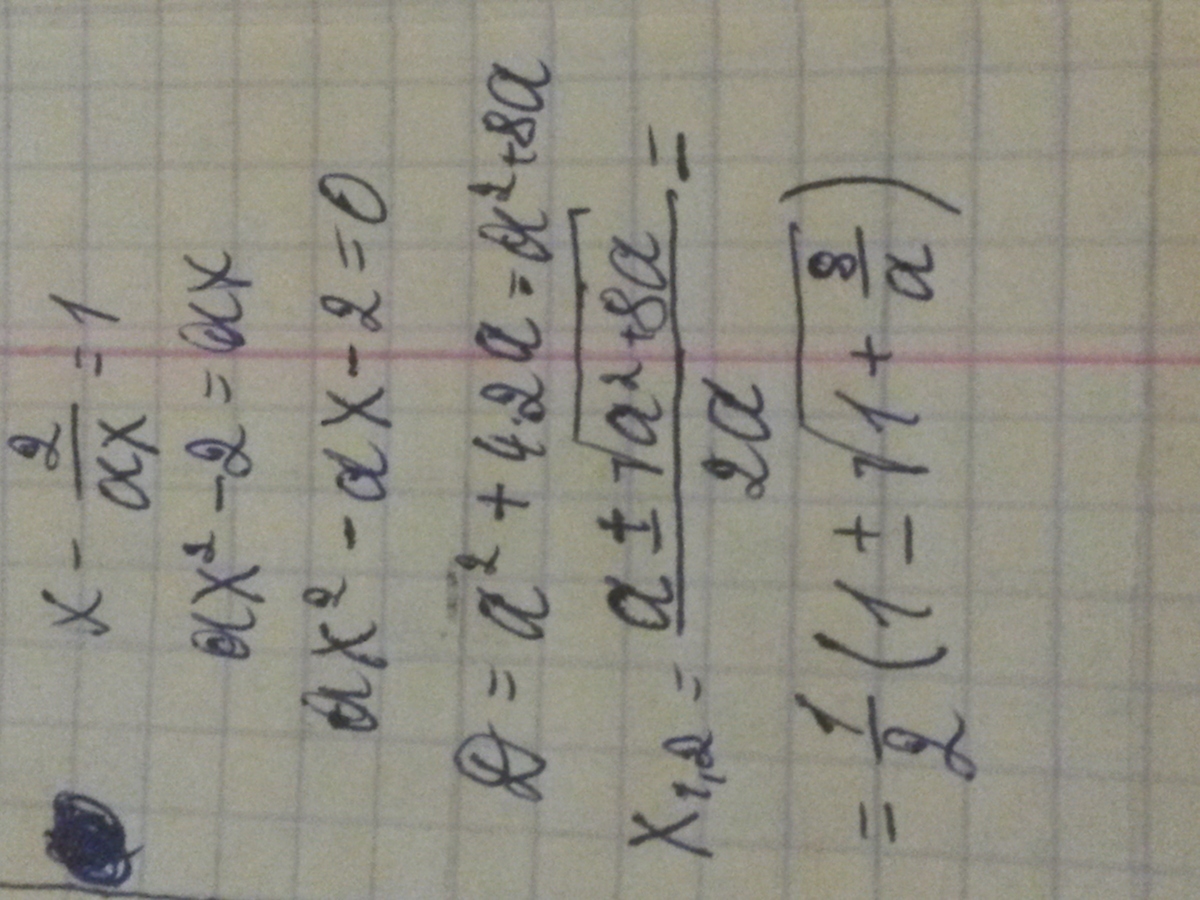 x - 2/ax = 1
ax² - 2 = ax
ax² - ax - 2 = 0
D = a² + 4·2a = a² + 8a
x₁,₂ = (a ± √(a² + 8a))/2a =
= 1/2 (1 ± √(1 + 8/a))